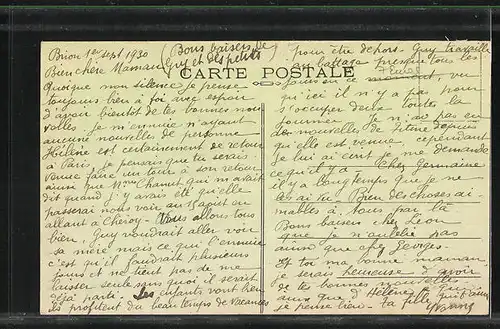 Brion 1er sept 1930
(Bons baisers de
Guy et des petits)
CARTE POSTALE
Bien chère Maman
Quoique mon silence je pense
toujours bien à toi avec espoir
d'avoir bientôt de tes bonnes nou
velles. Je m'ennuie n'ayant
aucune nouvelles de personne
Hélène est certainement de retour
à Paris, je pensais que tu serais
venue faire un tour à son retour
ainsi que Mme Chanut qui m'avait
dit quand j'y avais été qu'elle
passerai nous voir au 15 août en
allant à Chézoy. Nous allons tous
bien. Guy voudrait aller voir
sa mère mais ce qui l'ennuie
c'est qu'il faudrait plusieurs
jours et ne tient pas de me
laisser seule sans quoi il serait
déjà parti. Les enfants vont bien
ils profitent du beau temps de vacances
pour être dehors. Guy travaille
au presque tous les
jours en ce moment, vu
qu'ici il n'y a pas pour
s'occuper deux toutes la
journée. Je n'ai pas eu
des nouvelles de depuis
qu'elle est venue, cependant
je lui ai écrit je me demande
ce qu'il y a. Chez Germaine
il y a longtemps que je ne
les ai vu. Bien des choses ai-
mables à tous par là
Bons baisers chez Léon
que je n'oublie pas
ainsi que chez Georges.
Et toi ma bonne maman
je serais heureuse d'avoir
de tes bonnes nouvelles
ainsi que d'Hélène à qui
je pense bien. Ta fille qui t'aime
Yvonne